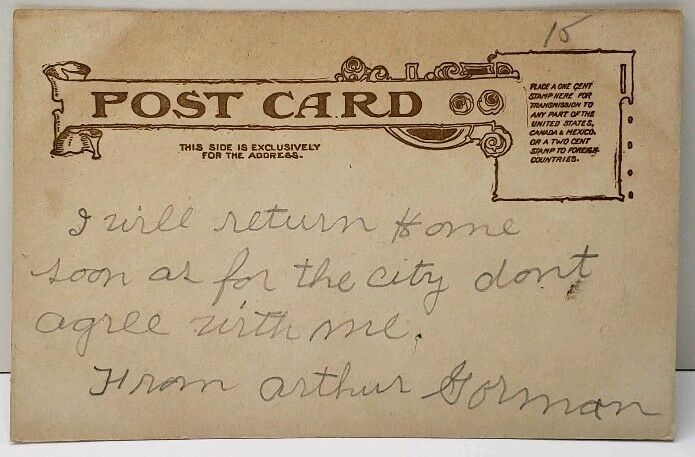 15
POST CARD
THIS SIDE IS EXCLUSIVELY
FOR THE ADDRESS.
PLACE A ONE CENT
STAMP HERE FOR
TRANSMISSION TO
ANY PART OF THE
UNITED STATES,
CANADA & MEXICO.
OR A TWO CENT
STAMP TO FOREIGN
COUNTRIES.
I will return Home
soon as for the city dont
agree with me.
From arthur Gorman